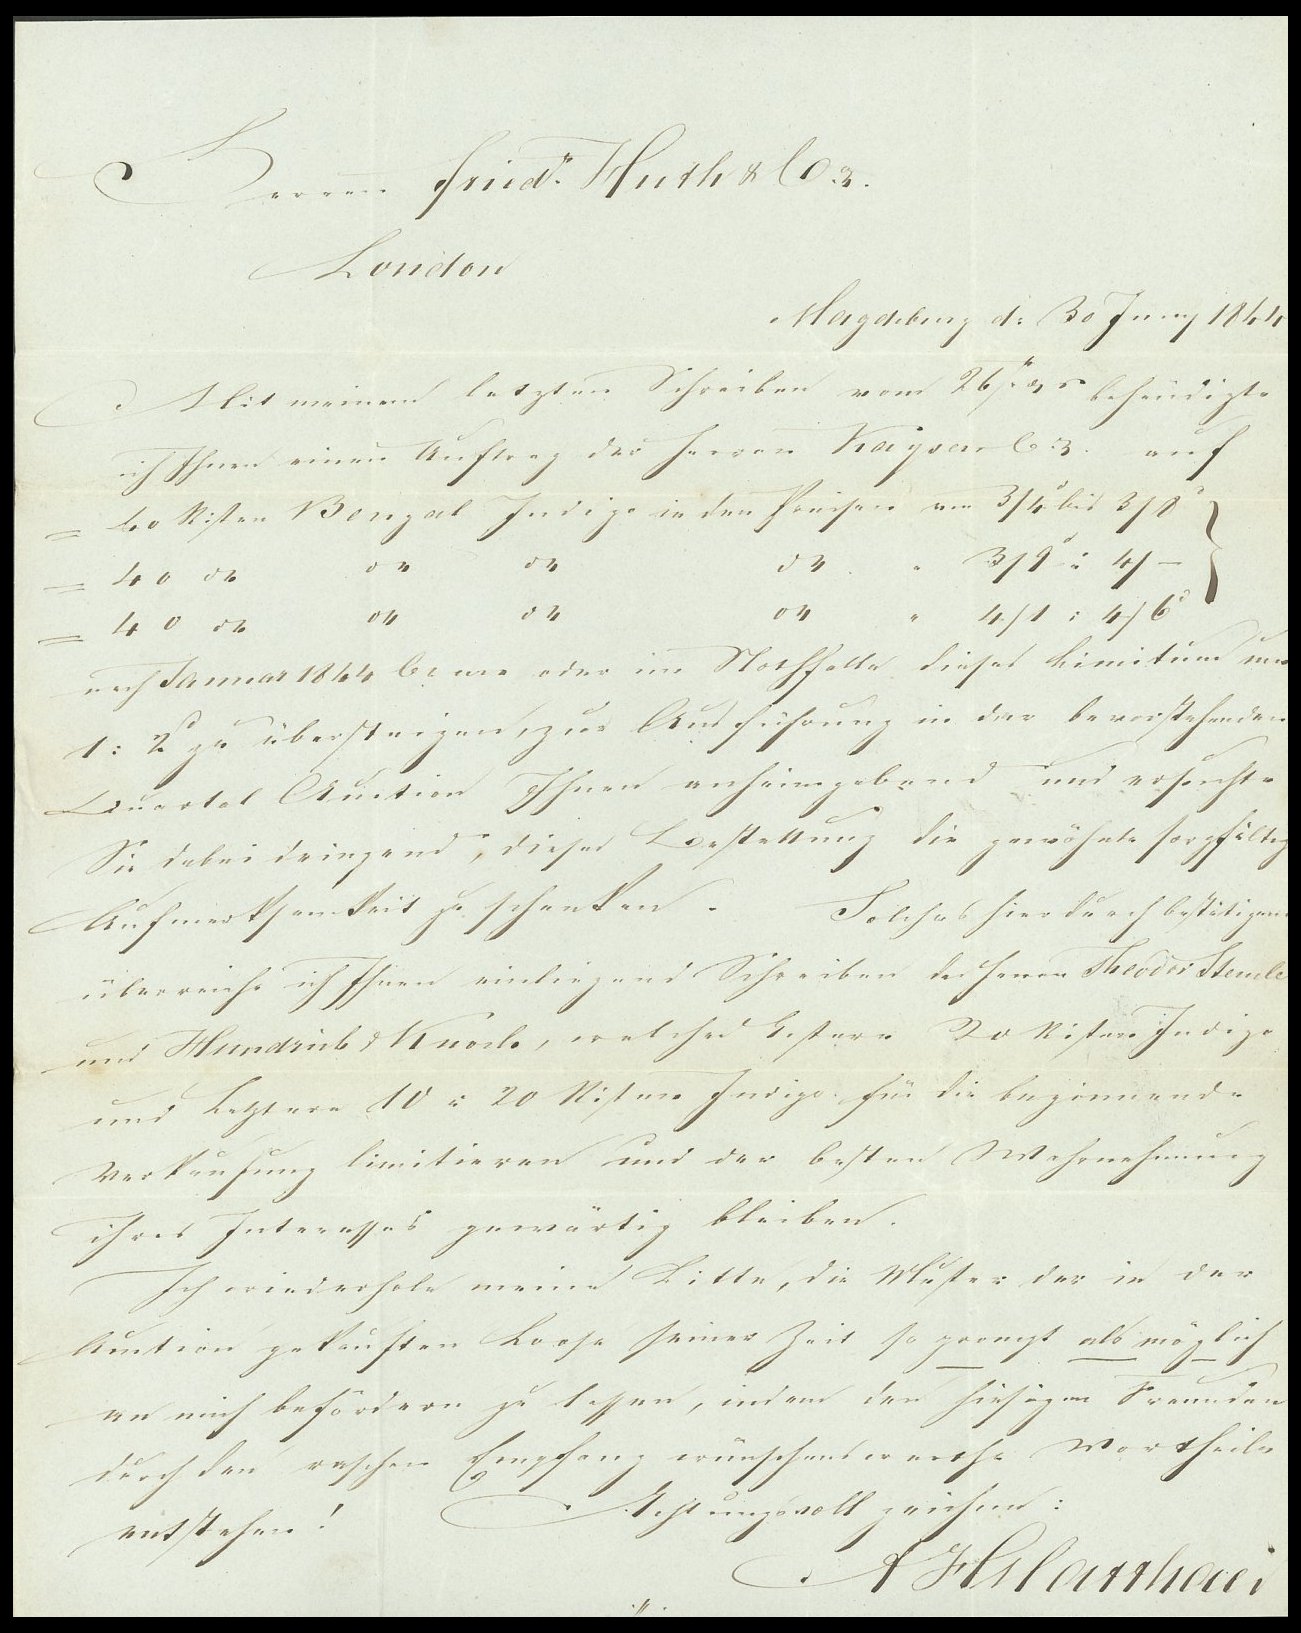 Herren Friedr. Huth & Co.
London
Magdeburg d. 30 Juny 1844
Mit meinem letzten Schreiben vom 26 behändigte
ich Ihnen einen Auftrag der Herren Kayser & Co. auf
60 Kisten Bengal Indigo in den Preisen von 3/4d bis 3/8d
40 do do do do " 3/9d a 4/–
40 do do do do " 4/1 : 4/6d
nach Januar 1844 oder im Nothfalle dieses Limitum um
1 : 2d zu übersteigen, zur Ausführung in der bevorstehenden
Quartal Auction Ihnen anheimgebend und ersuchte
Sie dabei dringend, dieser Bestellung die gewohnte sorgfältig
Aufmerksamkeit zu schenken. Solches hierdurch bestätigend
überreiche ich Ihnen einliegend Schreiben der Herren Theodor
und & , welches Erstere 20 Kisten Indigo
und Letztere 10 a 20 Kisten Indigo für die beginnende
Verkaufung limitieren und der besten Wahrnehmung
ihres Interesses gewärtig bleiben.
Ich wiederhole meine Bitte, die Muster der in der
Auction gekauften Loose seiner Zeit so prompt als möglich
an mich befördern zu lassen, indem den hiesigen Freunden
durch den raschen Empfang wünschenswerthe Vortheile
entstehen! Achtungsvoll zeichne: